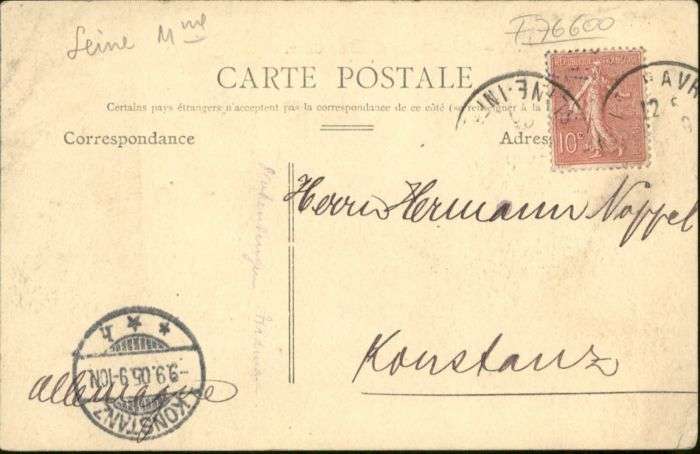 Seine Mme
F76600
CARTE POSTALE
Certains pays étrangers n'acceptent pas la correspondance de ce côté (se renseigner à la
Correspondance
Adres
REPUBLIQUE FRANÇAISE
10c
INE-INF
AVR
12
Herrn Hermann Noppel
Konstanz
Allemagne
KONSTANZ
-9.9.05.9-10N.
* * h